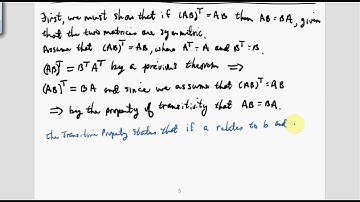 First, we must show that if (AB)ᵀ = AB then AB = BA, given
that the two matrices are symmetric.
Assume that (AB)ᵀ = AB, where Aᵀ = A and Bᵀ = B.
(AB)ᵀ = BᵀAᵀ by a previous theorem ⟹
(AB)ᵀ = BA and since we assume that (AB)ᵀ = AB
⟹ by the property of transitivity that AB = BA.
The Transitive Property states that if a relates to b and
5